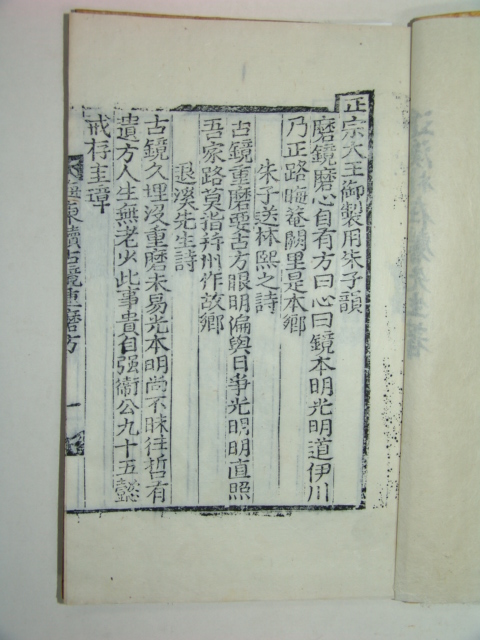 正宗大王御製用朱子韻
磨鏡磨心自有方曰心曰鏡本明光明道伊川
乃正路晦菴闕里是本鄉
朱子送林熙之詩
古鏡重磨要古方眼明偏與日爭光明明直照
吾家路莫指幷州作故鄉
退溪先生詩
古鏡久埋沒重磨未易光本明尚不昧往哲有
遺方人生無老少此事貴自强衛公九十五懿
戒存圭璋
東續古鏡重磨方 一